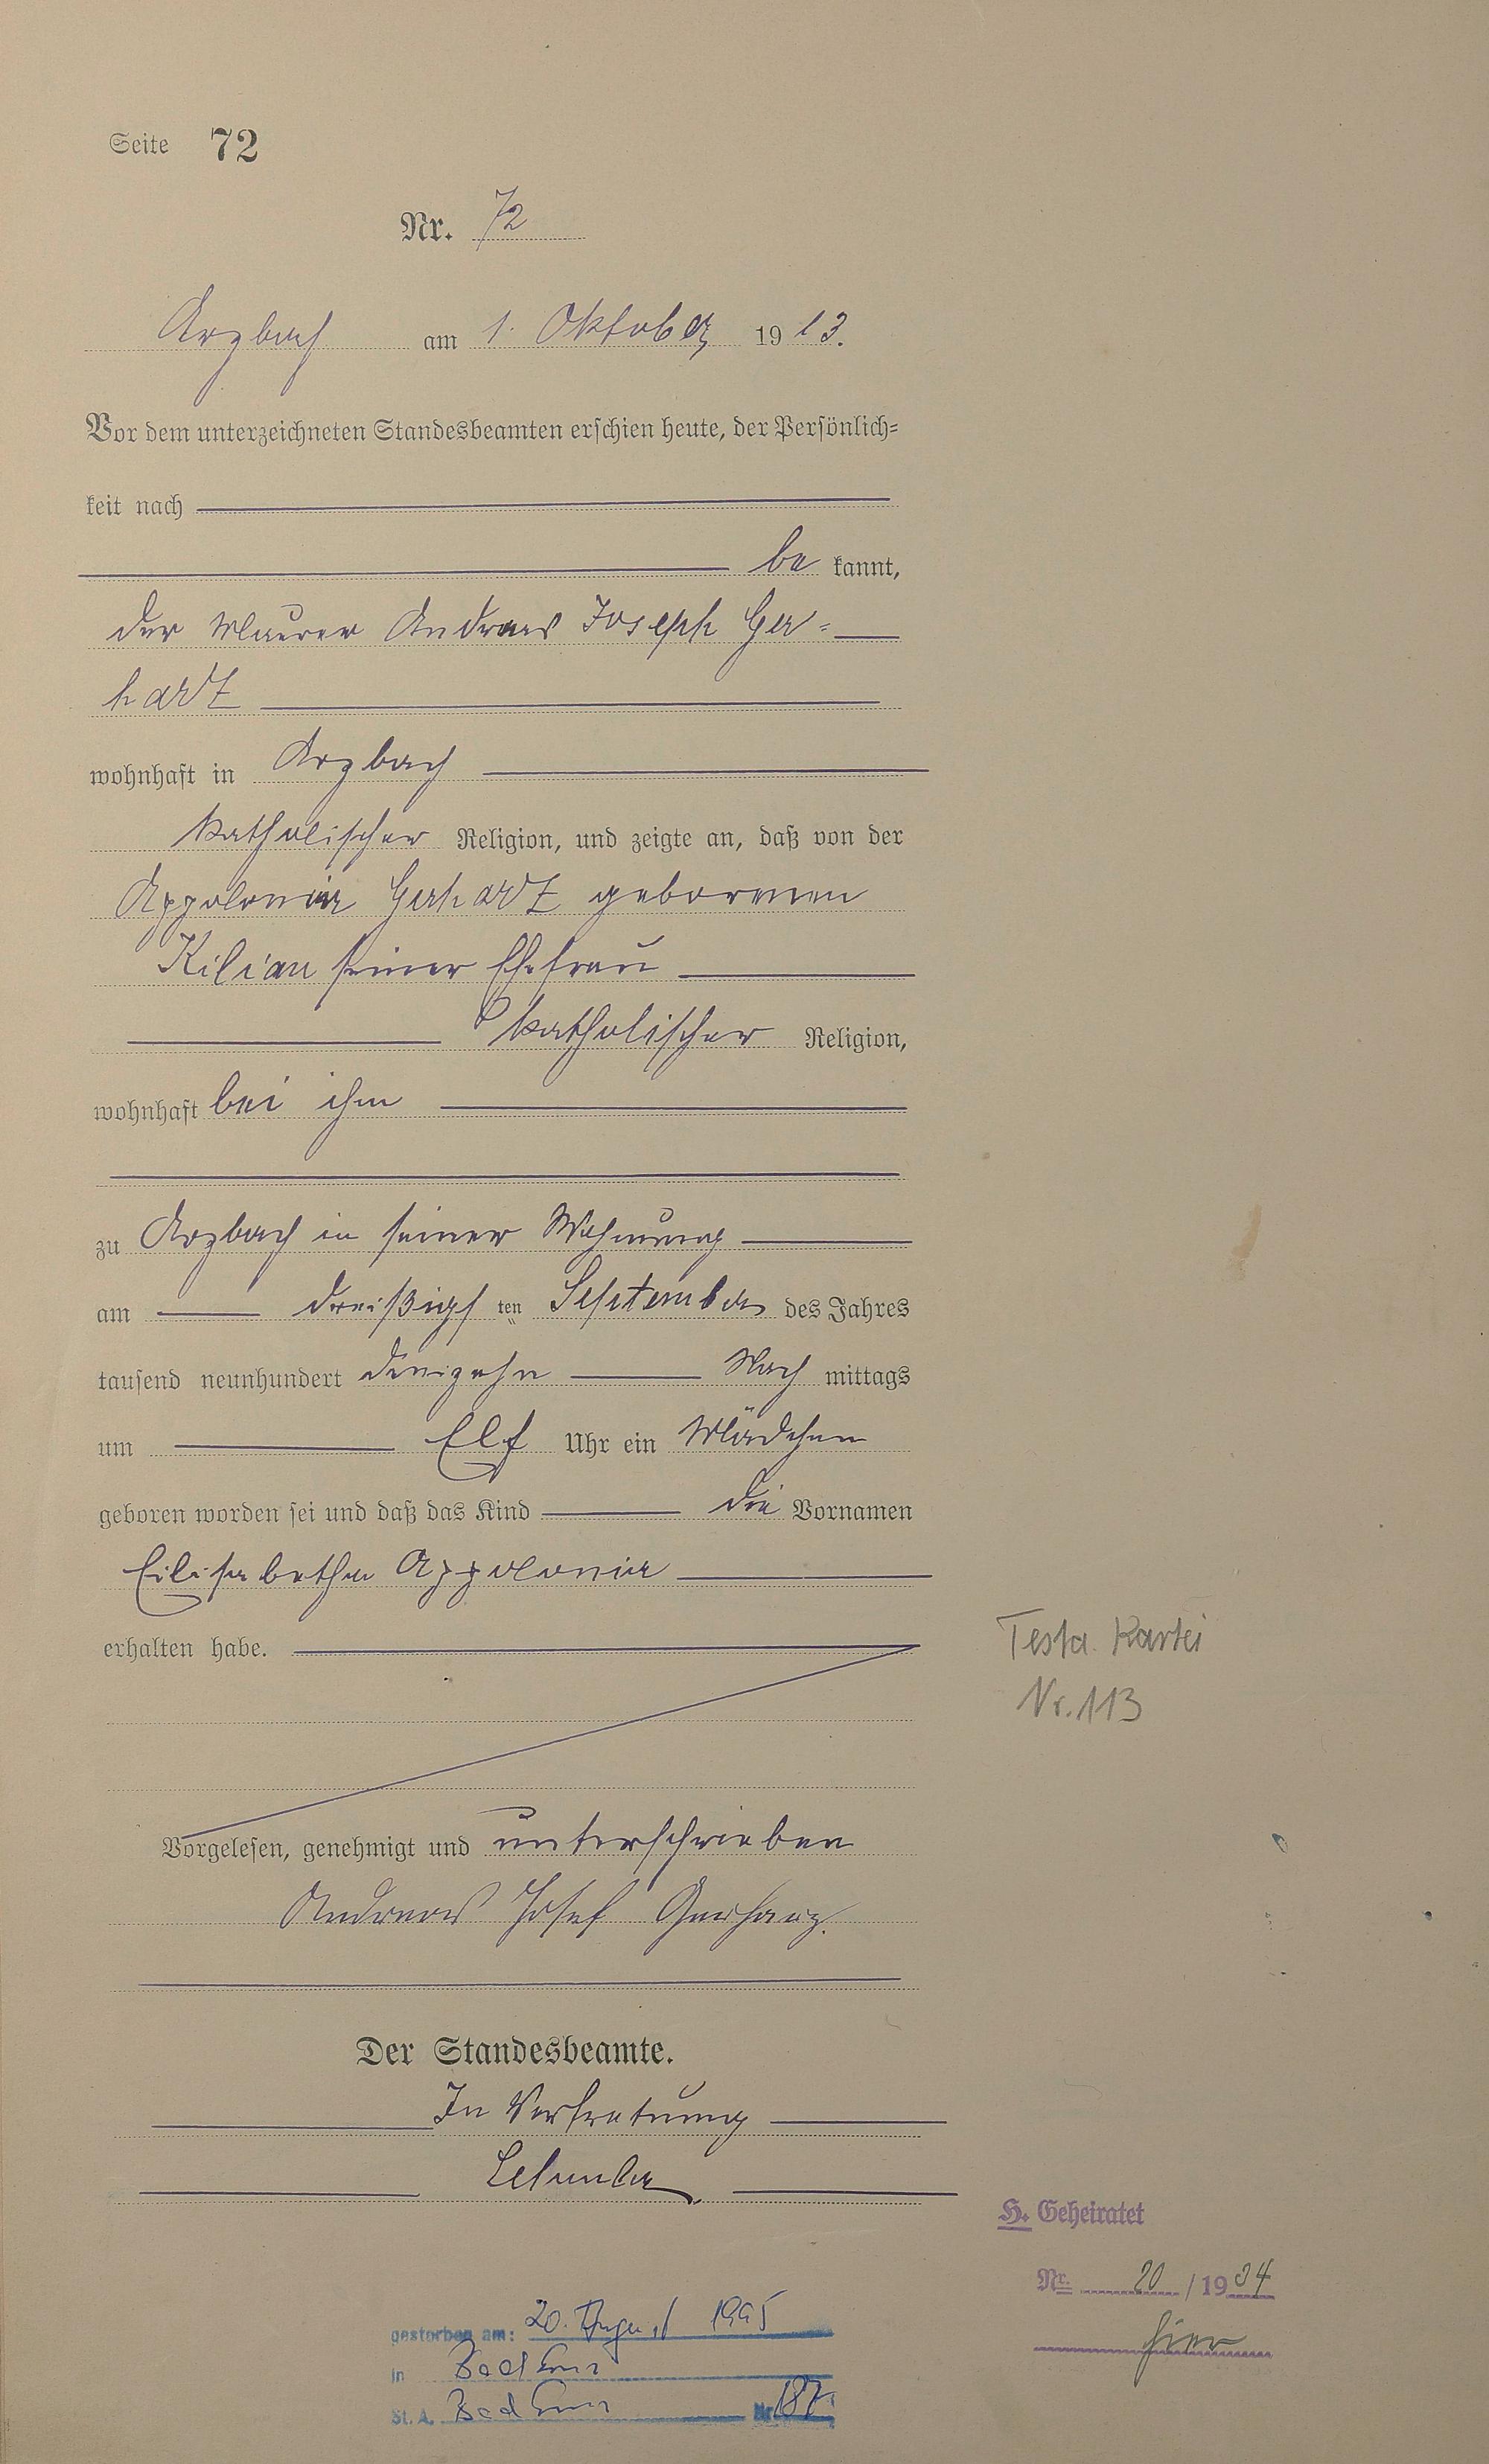 Seite 72
Nr. 72
Arzbach am 1. Oktober 1913.
Vor dem unterzeichneten Standesbeamten erschien heute, der Persönlich=
keit nach
be kannt,
der Maurer Andreas Joseph Ger=
hartz
wohnhaft in Arzbach
katholischer Religion, und zeigte an, daß von der
Appolonia Gerhartz geborenen
Kilian seiner Ehefrau
katholischer Religion,
wohnhaft bei ihm
zu Arzbach in seiner Wohnung
am dreißigs ten September des Jahres
tausend neunhundert dreizehn Nach mittags
um Elf Uhr ein Mädchen
geboren worden sei und daß das Kind die Vornamen
Appolonia
erhalten habe.
Testa. Kartei
Nr. 113
Vorgelesen, genehmigt und unterschrieben
Andreas Josef Gerharz.
Der Standesbeamte.
In Vertretung
H. Geheiratet
Nr. 20 / 1934
hier
gestorben am: 20. August 1995
in Bad Ems
St. A. Bad Ems Nr. 187